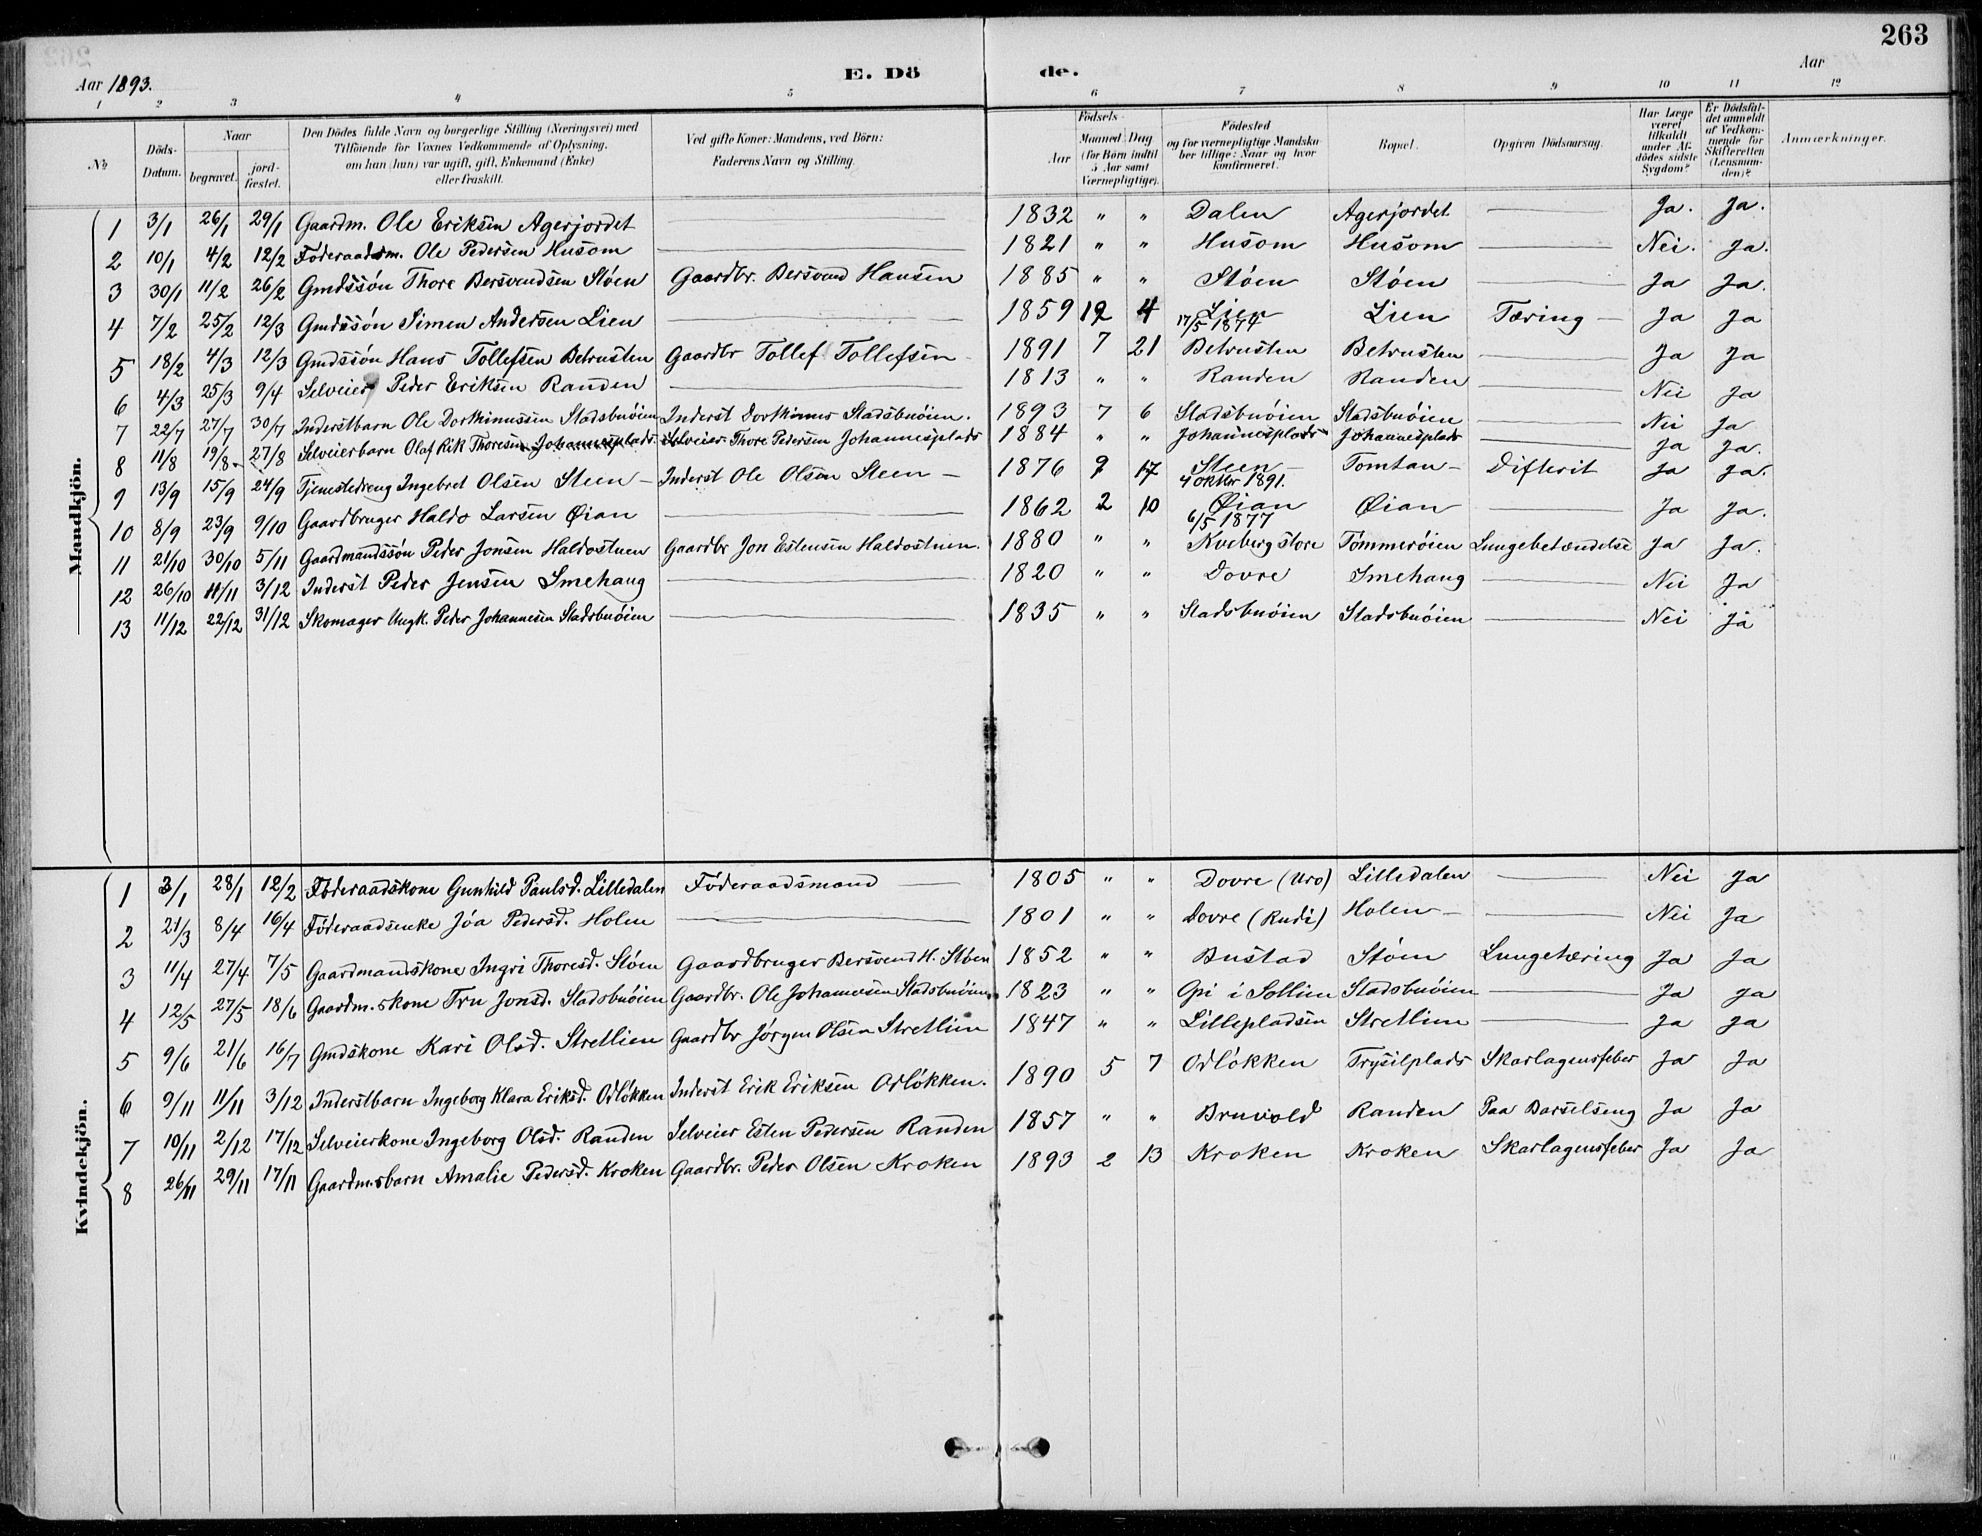 263
Aar 1893. E. Dö de. Aar
1 2 3 4 5 6 7 8 9 10 11 12
No. Döds-Datum. Naar begravet. jord-fæstet. Den Dödes fulde Navn og borgerlige Stilling (Næringsvei) med Tilföiende for Voxnes Vedkommende af Oplysning, om han (hun) var ugift, gift, Enkemand (Enke) eller fraskilt. Ved gifte Koner: Mandens, ved Börn: Faderens Navn og Stilling. Födsels- Aar Maaned Dag (for Börn indtil 5 Aar samt Værnepligtige). Födested og for værnepligtige Mandskaber tillige: Naar og hvor konfirmeret. Bopæl. Opgiven Dödsaarsag. Har Læge været tilkaldt under Afdödes sidste Sygdom? Er Dödsfaldet anmeldt af Vedkommende for Skifteretten (Lensmanden)? Anmærkninger.
Mandkjön.
1 3/1 26/1 29/1 Gaardm. Ole Eriksen Agerjordet 1832 " " Dalen Agerjordet Ja. Ja.
2 10/1 4/2 12/2 Föderaadsm. Ole Pedersen Husom 1821 " " Husom Husom Nei. Ja.
3 30/1 11/2 26/2 Gmdssön Thore Bersvendsen Stöen Gaardbr. Bersvend Hansen 1885 " " Stöen Stöen Ja Ja.
4 7/2 25/2 12/3 Gmdssön Simen Andersen Lien 1859 12 4 Lien 17/5 1874 Lien Tæring Ja Ja
5 18/2 4/3 12/3 Gmdssön Hans Tollefsen Betrusten Gaardbr Tollef Tollefsen 1891 7 21 Betrusten Betrusten Ja Ja
6 4/3 25/3 9/4 Selveier Peder Eriksen Randen 1813 " " Randen Randen Nei Ja
7 22/7 27/7 30/7 Inderstbarn Ole Dorthinussen Stadsbuöien Inderst Dorthinus Stadsbuöien. 1893 7 6 Stadsbuöien Stadsbuöien Nei Ja
8 11/8 19/8 27/8 Selveierbarn Olaf Rik Thoresen Johannesplads Selveier Thore Pedersen Johannesplads 1884 " " Johannesplads Johannesplads Ja Ja.
9 13/9 15/9 24/9 Tjenestedreng Ingebret Olsen Steen Inderst Ole Olsen Steen 1876 9 17 Steen 4 oktbr 1891. Tomtan Difterit Ja Ja.
10 8/9 23/9 9/10 Gaardbruger Haldo Larsen Øian 1862 2 10 Øian 6/5 1877 Øian Ja Ja.
11 21/10 30/10 5/11 Gaardmandssön Peder Jonsen Haldostuen Gaardbr Jon Estensen Haldostuen. 1880 " " Kveberg store Tömmeröien Lungebetændelse Ja Ja.
12 26/10 11/11 3/12 Inderst Peder Jensen Smehaug 1820 " " Dovre Smehaug Nei Ja
13 11/12 22/12 31/12 Skomager Ungk. Peder Johannesen Stadsbuöien 1835 " " Stadsbuöien Stadsbuöien Nei Ja
Kvindekjön.
1 3/1 28/1 12/2 Föderaadskone Gunhild Paulsd. Lilledalen Föderaadsmand 1805 " " Dovre (Uro) Lilledalen Nei Ja
2 21/3 8/4 16/4 Föderaadsenke Jóa Pedersd. Holen 1801 " " Dovre (Rudi) Holen Nei Ja
3 11/4 27/4 7/5 Gaardmandskone Ingri Thoresd. Stöen Gaardbruger Bersvend H. Stöen 1852 " " Bustad Stöen Lungetæring Ja Ja
4 12/5 27/5 18/6 Gaardm.skone Tru Jonsd. Stadsbuöien Gaardbr. Ole Johannesen Stadsbuöien 1823 " " i Sollien Stadsbuöien Ja Ja
5 9/6 21/6 16/7 Gmdskone Kari Olsd. Stretlien Gaardbr Jörgen Olsen Stretlien 1847 " " Lillepladsen Stretlien Ja Ja
6 9/11 11/11 3/12 Inderstbarn Ingeborg Klara Eriksd. Odlökken Inderst Erik Eriksen Odlökken. 1890 5 7 Odlökken Trysilplads Skarlagensfeber Ja Ja
7 10/11 2/12 17/12 Selveierkone Ingeborg Olsd. Randen Selveier Esten Pedersen Randen 1857 " " Bruvold Randen Paa Barselseng Ja Ja
8 26/11 29/11 17/11 Gaardm.sbarn Amalie Pedersd. Kroken Gaardbr. Peder Olsen Kroken 1893 2 13 Kroken Kroken Skarlagensfeber Ja Ja